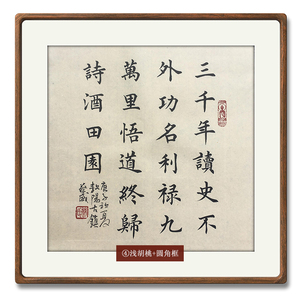 三千年讀史不
外功名利禄九
萬里悟道終歸
詩酒田園
庚子初夏
敦陽古鎮
④浅胡桃+圆角框